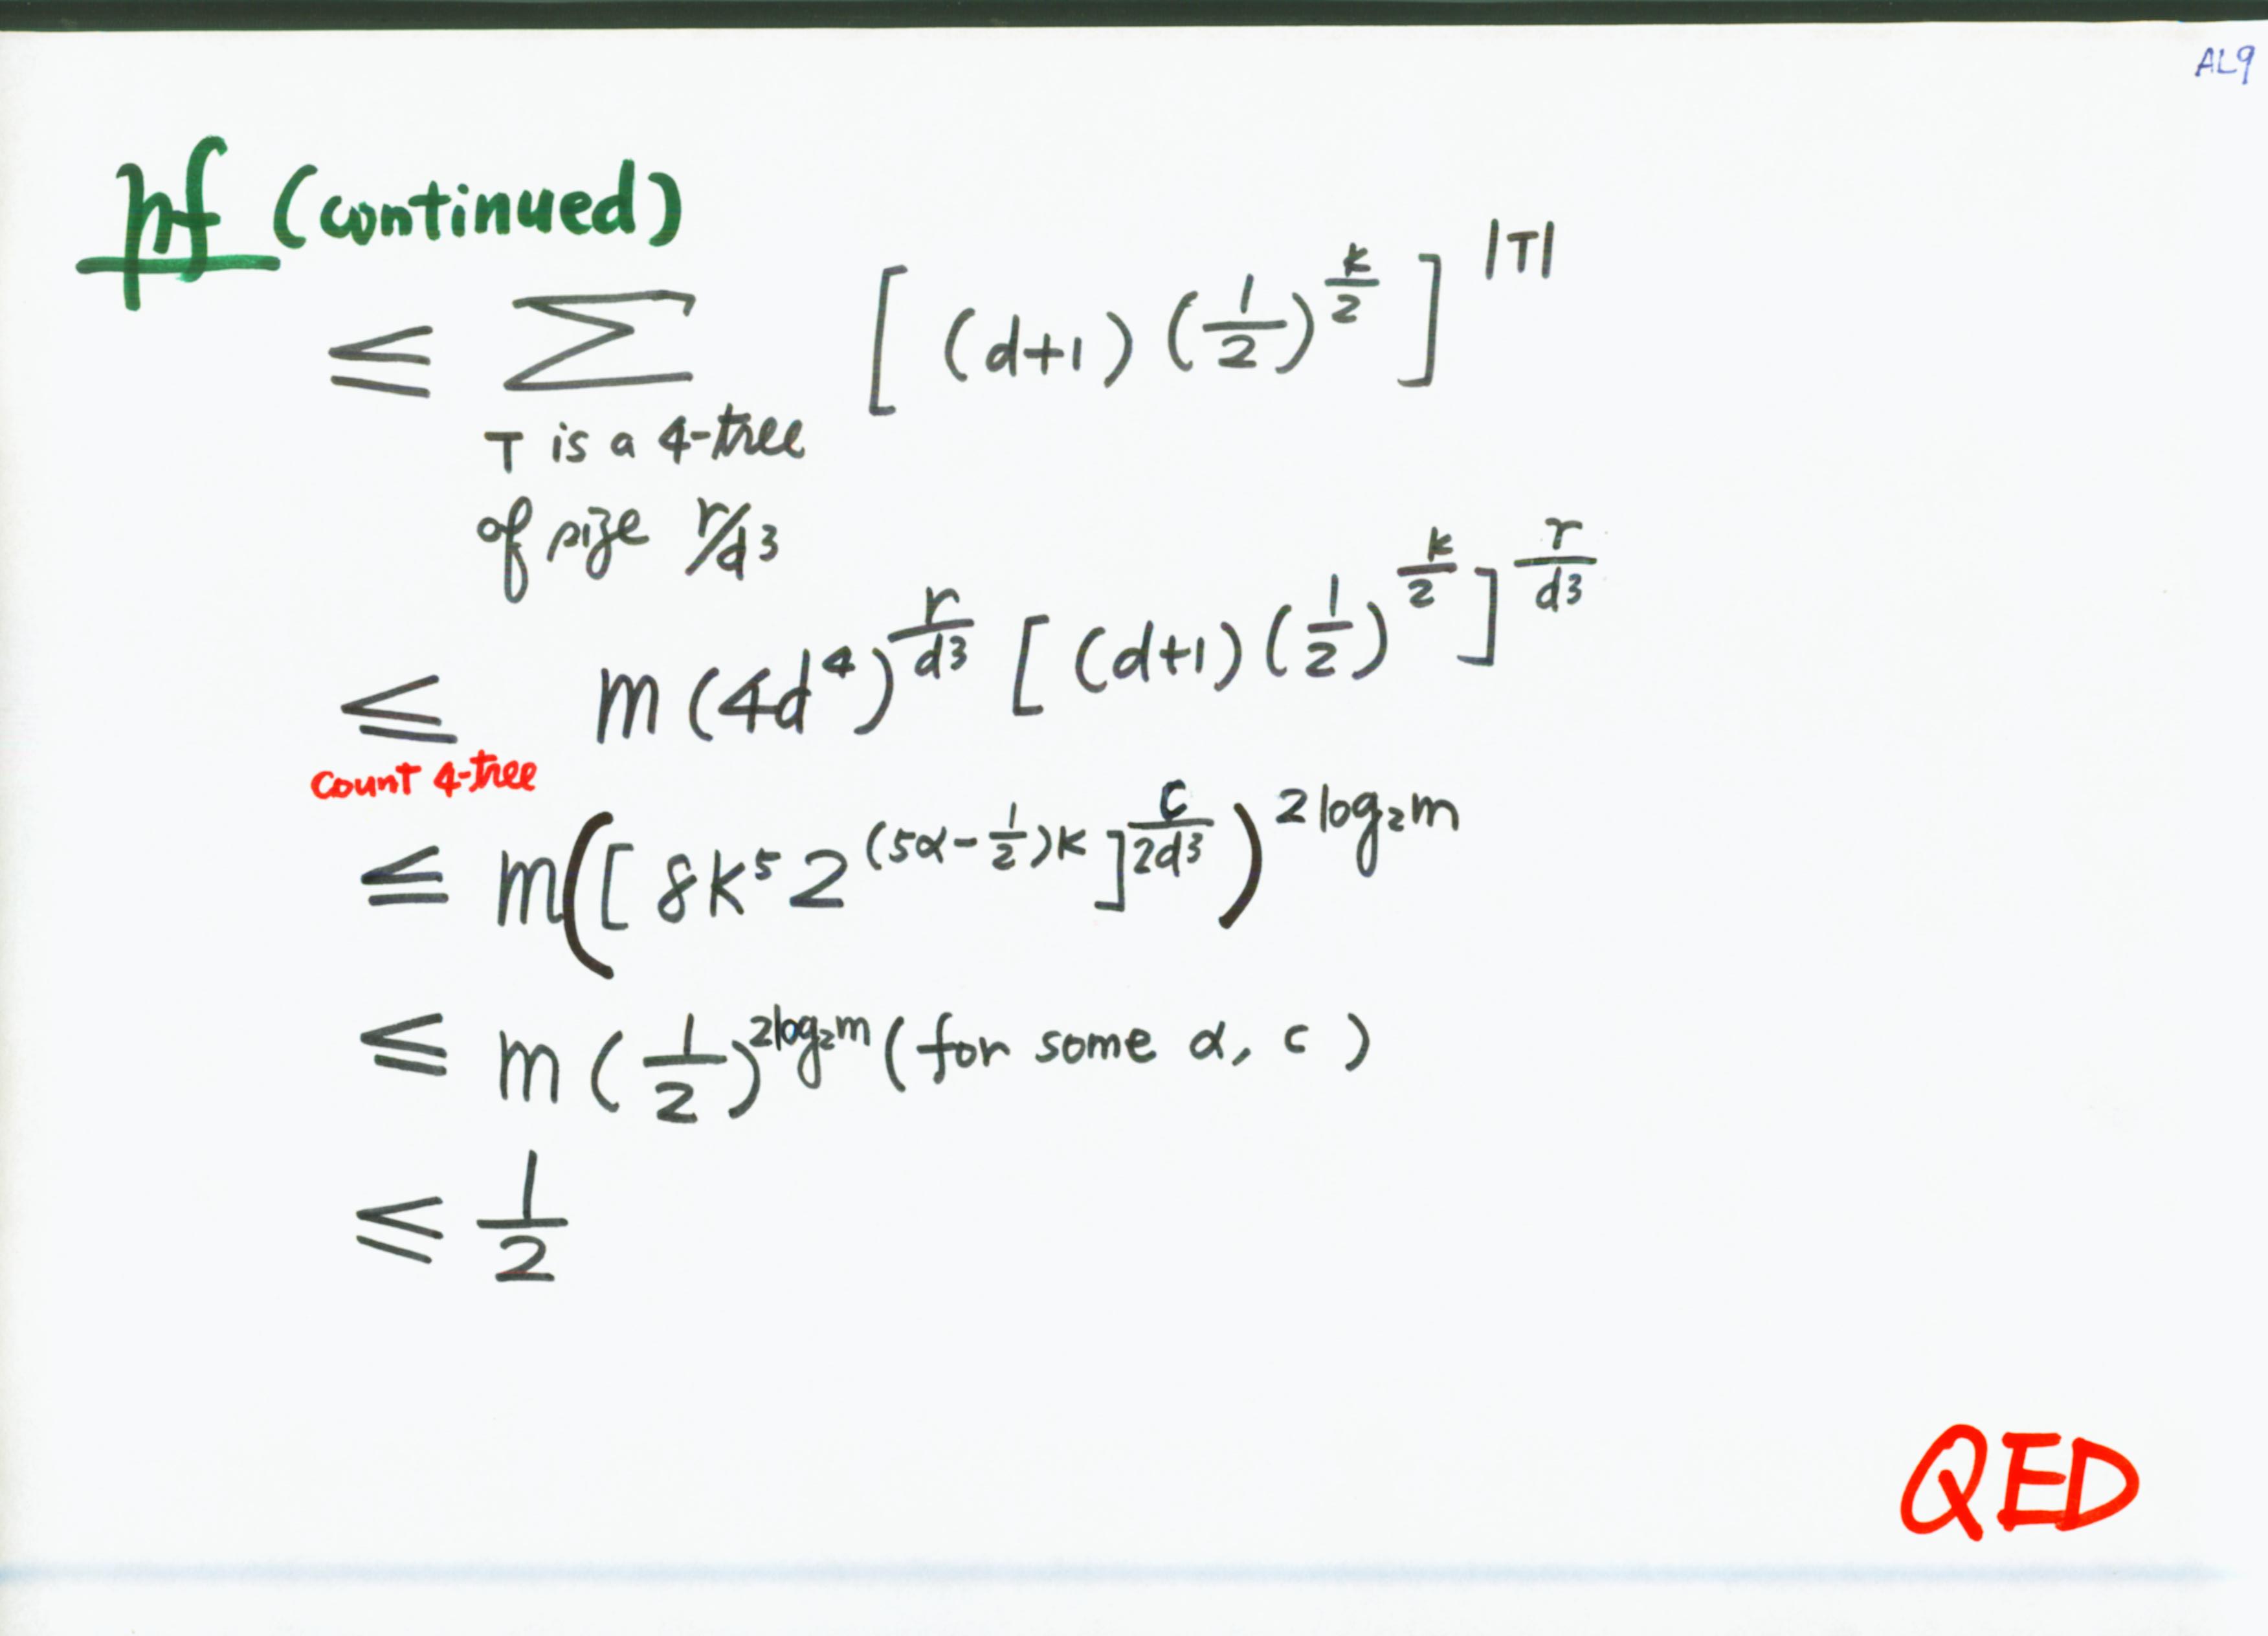 AL9
pf (continued)
≤ ∑ [ (d+1) (1/2)^(k/2) ]^|T|
T is a 4-tree
of size r/d3
≤ m (4d^4)^(r/d3) [ (d+1) (1/2)^(k/2) ]^(r/d3)
count 4-tree
≤ m ( [ 8k^5 2^((5α - 1/2)k) ]^(c/2d3) )^(2 log₂m)
≤ m ( 1/2 )^(2log₂m) ( for some α, c )
≤ 1/2
QED